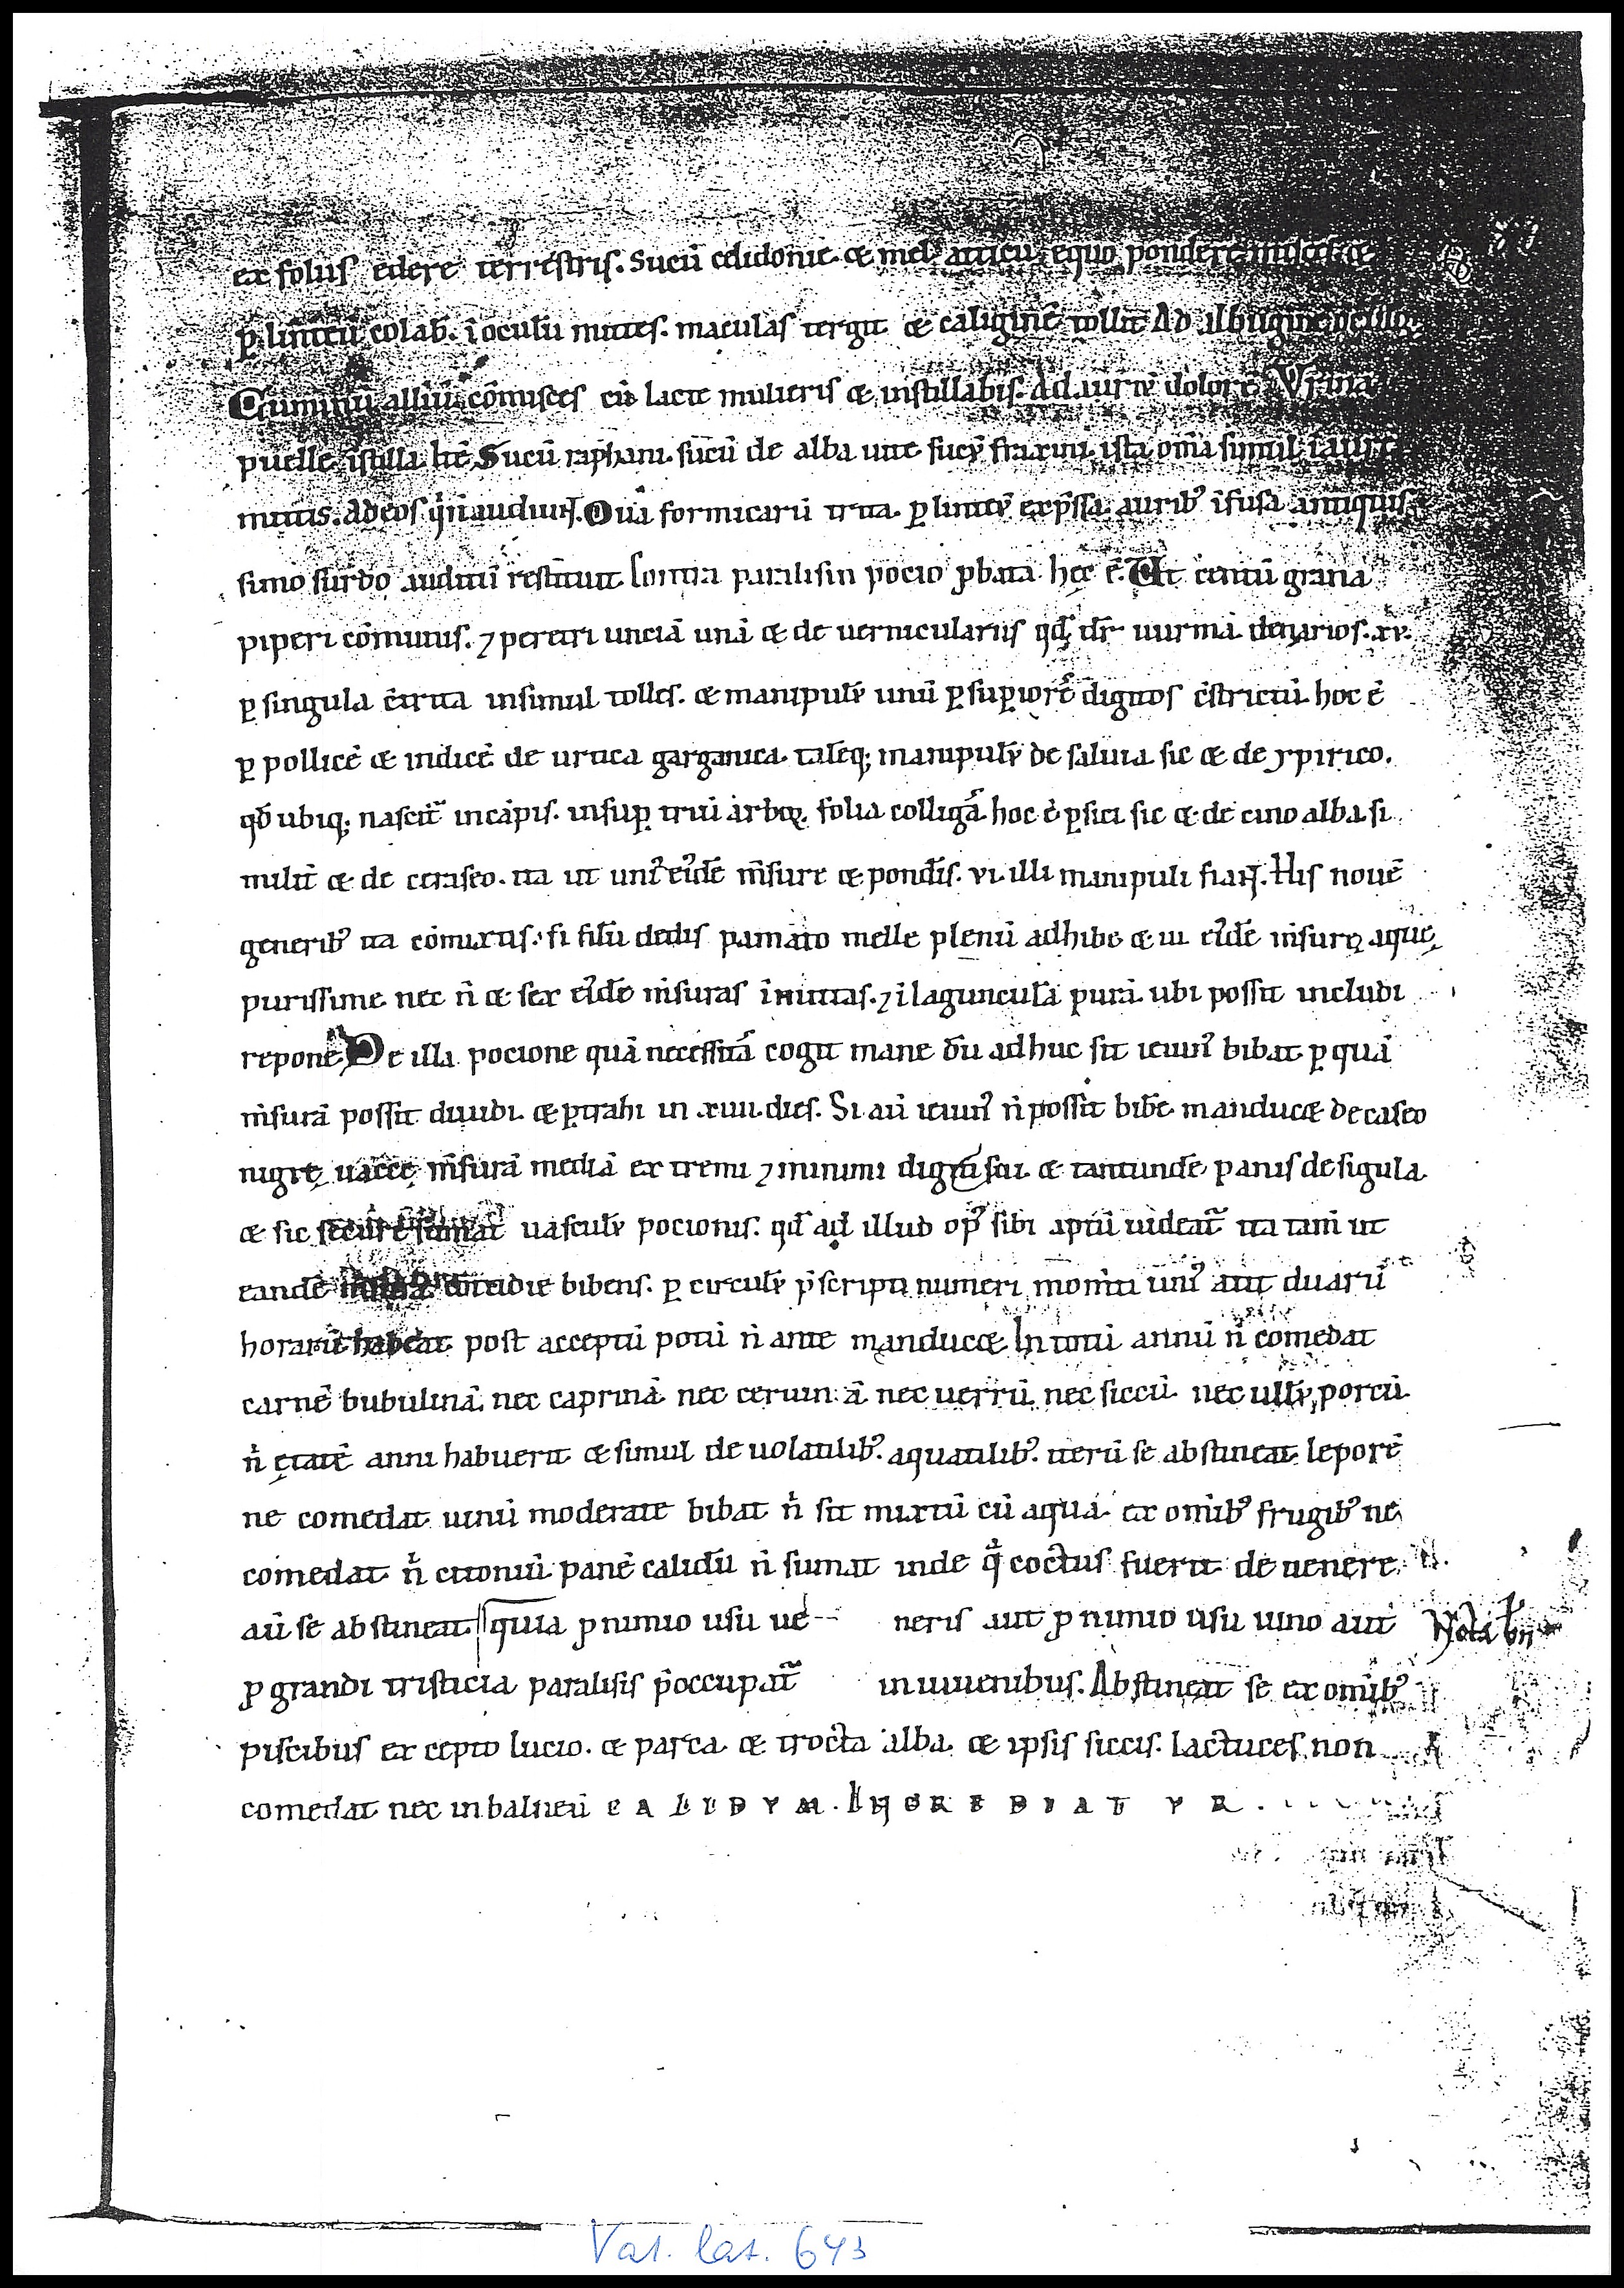 ex foliis edere terrestris. Sucū celidonie & mel atticū equo pondere misces &
ꝑ linteū colab̄. ī oculū mittes. maculas tergit & caliginē tollit Ad albuginē
Cuminū alliū cōmisces cū lacte mulieris & instillabis. Ad auriū dolorē Vrinā
puelle īstilla ītē Sucū raphani sucū de alba uite sucū fraxini ista om̄ia simul ī aurē
mittis. Ad eos q̇ n̄ audiunt. Oua formicarū trita ꝑ linteū exp̄ssa aurib᷒ īfusa antiquis
simo surdo auditū restituit Contra paralisin pocio ꝓbata hec ē. Ut centū grana
piperi cōmittis. ⁊ peretri unciā unā & de uernicularus qd̄ dr̄ uurma denarios. xv.
ꝑ singula cū trita insimul tolles. & manipulū unū ꝑ supiorē digitos cstrictū hoc ē
ꝑ pollicē & indicē de urtica garganica. talēq; manipulū de saluia sic & de ypirico.
qd̄ ubiq; nascit̄ in cāpis. insuꝑ triū arboꝝ folia colligā hoc ē ꝑsici sic & de cino alba si
milit̄ & de ceraseo. ita ut uni᷒ ei᷒dē m̄sure & pond̄is. vi. illi manipuli fiant. His nouē
generib᷒ ita cōmixtis. si filū dedis pamato melle plenū adhibe & iii ei᷒dē m̄sure aque
purissime nec n̄ & sex ei᷒dē m̄suras īmittas. ⁊ ī lagunculā purā ubi possit includi
repone De illa pocione quā necessitā cogit mane dū adhuc sit ieiun᷒ bibat ꝑ quā
m̄surā possit diuidi & ꝑtrahi in xiiii dies. Si aū ieiun᷒ n̄ possit bibe manduc& de caseo
nigre uacce m̄surā mediā extremi ⁊ minimi digiti sui & tantundē panis de sigula
& sic secure sumat uasculū pocionis. qd̄ ad illud op᷒ sibi aptū uideat̄ ita tam̄ ut
eandē cottidie bibens. ꝑ circulū p̄scripti numeri mom̄ti uni᷒ aut duarū
horarū habeat post acceptū potū n̄ ante manduc& In totū annū n̄ comedat
carnē bubulinā nec caprinā nec ceruinā nec uerrū nec siccū nec ullū porcū
n̄ etatē anni habuerit & simul de uolatilib᷒ aquatilib᷒. iterū se abstineat leporē
ne comedat uinū moderate bibat n̄ sit mixtū cū aqua. ex om̄ib᷒ frugib᷒ ne
comedat n̄ citoniū panē calidū n̄ sumat inde q̇ coctus fuerit de uenere
aū se abstineat quia ꝓ nimio usu ue-- neris aut ꝓ nimio usu uino aut
ꝓ grandi tristicia paralisis p̄occupat̄ in iuuenibus. Abstineat se ex om̄ib᷒
piscibus excepto lucio. & parca & trocta alba & ipsis siccis. lactuces non
comedat nec in balneū CALIDVM. INGREDIATVR.
Nota bn̄
Vat. lat. 643